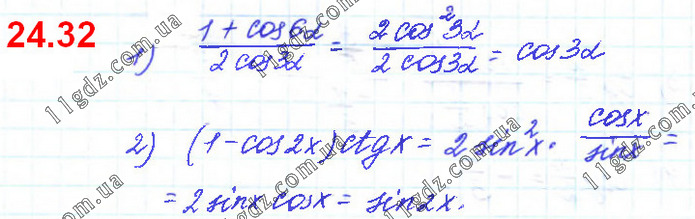 24.32
1) (1 + cos6α)/(2 cos3α) = (2 cos²3α)/(2 cos3α) = cos3α
2) (1 - cos2x) ctgx = 2 sin²x · cosx/sinx =
= 2 sinx cosx = sin2x.
11gdz.com.ua
11gdz.com.ua
11gdz.com.ua
11gdz.com.ua
11gdz.com.ua